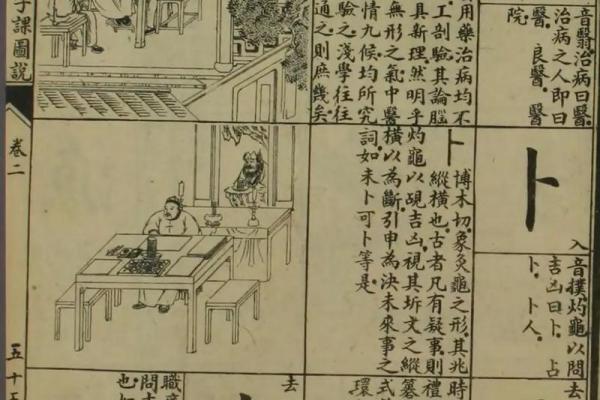 音翳治病曰醫
治病之人即曰
醫 良醫 醫
院
用藥治病均不
工剖驗其論腦
具新理然明乎
無形之氣中醫
情九候均所究
驗之淺學往往
通之則庶幾矣
卜
入
音撲灼龜以問
吉凶曰卜 占
卜 卜人
卜 博木切象灸龜之形其兆
縱橫也古者凡有疑事則
灼龜以覘吉凶視其坼文之縱
橫以為斷引申為決未來事之
詞如未卜可卜等是
去
時
禮
式
環
去
職
問
也
子課圖說
卷二
五十五